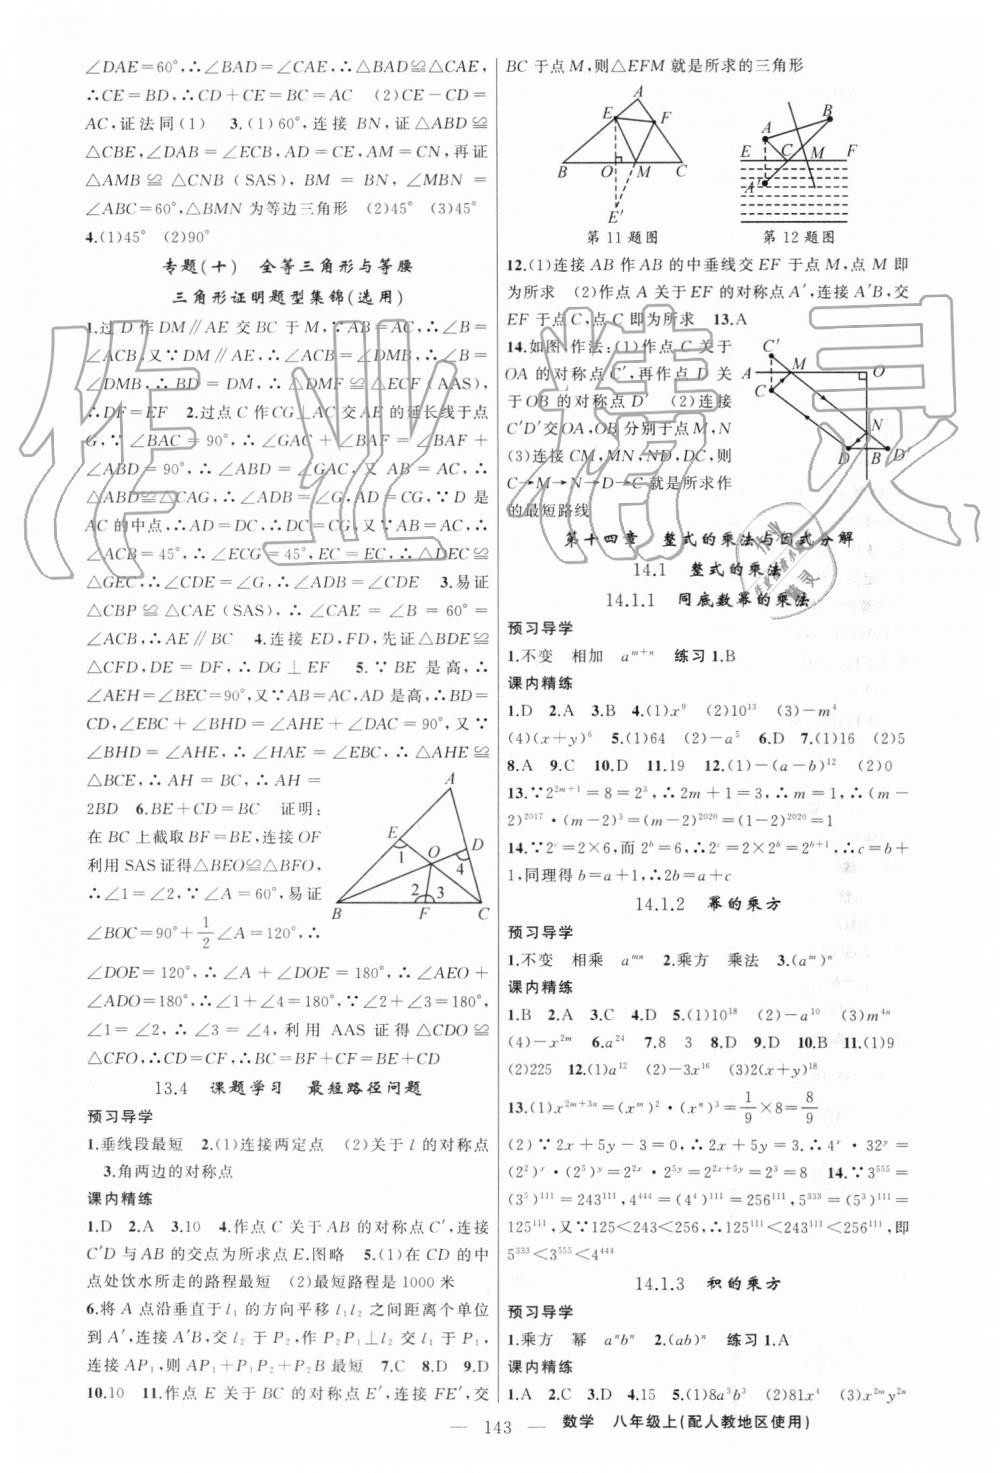 ∠DAE=60°,∴∠BAD=∠CAE,∴△BAD≌△CAE,
∴CE=BD,∴CD+CE=BC=AC (2)CE-CD=
AC,证法同(1) 3.(1)60°,连接 BN,证△ABD≌
△CBE,∠DAB=∠ECB,AD=CE,AM=CN,再证
△AMB≌△CNB(SAS),BM=BN,∠MBN=
∠ABC=60°,△BMN 为等边三角形 (2)45° (3)45°
4.(1)45° (2)90°
专题(十) 全等三角形与等腰
三角形证明题型集锦(选用)
1.过 D 作 DM∥AE 交 BC 于 M,∵AB=AC,∴∠B=
∠ACB,又∵DM∥AE,∴∠ACB=∠DMB,∴∠B=
∠DMB,∴BD=DM,∴△DMF≌△ECF(AAS),
∴DF=EF 2.过点 C 作 CG⊥AC 交 AE 的延长线于点
G,∵∠BAC=90°,∴∠GAC+∠BAF=∠BAF+
∠ABD=90°,∴∠ABD=∠GAC 又 AB=AC,∴
△ABD≌△CAG,∴∠ADB=∠G,AD=GC,∵D 是
AC 的中点,∴AD=DC,∴DC=GC,∵AB=AC,∴
∠ACB=45°,∴∠ECG=45°,EC=EC,∴△DEC≌
△GEC,∴∠CDE=∠G,∴∠ADB=∠CDE 3.易证
△CBP≌△CAE(SAS),∴∠CAE=∠B=60°=
∠ACB,∴AE∥BC 4.连接 ED,FD,先证△BDE≌
△CFD,DE=DF,∴DG⊥EF 5.∵BE 是高,∴
∠AEH=∠BEC=90°,又∵AB=AC,AD 是高,∴BD=
CD,∠EBC+∠BHD=∠AHE+∠DAC=90°,又∵
∠BHD=∠AHE,∴∠HAE=∠EBC,∴△AHE≌
△BCE,∴AH=BC,∴AH=
2BD 6.BE+CD=BC 证明:
在 BC 上截取 BF=BE,连接 OF
利用 SAS 证得△BEO≌△BFO,
∴∠1=∠2,∵∠A=60°,易证
∠BOC=90°+1/2∠A=120°,∴
∠DOE=120°,∴∠A+∠DOE=180°,∴∠AEO+
∠ADO=180°,∴∠1+∠4=180°,∵∠2+∠3=180°,
∠1=∠2,∴∠3=∠4,利用 AAS 证得△CDO≌
△CFO,∴CD=CF,∴BC=BF+CF=BE+CD
A
E
D
1
O
4
2
3
B
F
C
13.4 课题学习 最短路径问题
预习导学
1.垂线段最短 2.(1)连接两定点 (2)关于 l 的对称点
3.角两边的对称点
课内精练
1.D 2.A 3.10 4.作点 C 关于 AB 的对称点 C′,连接
C′D 与 AB 的交点为所求点 E.图略 5.(1)在 CD 的中
点处饮水所走的路程最短 (2)最短路程是 1000 米
6.将 A 点沿垂直于 l₁ 的方向平移 l₁l₂ 之间距离个单位
到 A′,连接 A′B,交 l₂ 于 P₂,作 P₂P₁⊥l₂ 交 l₁ 于 P₁,
连接 AP₁,则 AP₁+P₁P₂+P₂B 最短 7.C 8.D 9.D
10.10 11.作点 E 关于 BC 的对称点 E′,连接 FE′,交
BC 于点 M,则△EFM 就是所求的三角形
A
E
F
B
O
M
C
E′
第 11 题图
A
B
E
C
M
F
A′
第 12 题图
12.(1)连接 AB 作 AB 的中垂线交 EF 于点 M,点 M 即
为所求 (2)作点 A 关于 EF 的对称点 A′,连接 A′B,交
EF 于点 C,点 C 即为所求 13.A
14.如图 作法:(1)作点 C 关于
OA 的对称点 C′,再作点 D 关
于 OB 的对称点 D′ (2)连接
C′D′交 OA,OB 分别于点 M,N
(3)连接 CM,MN,ND,DC,则
C→M→N→D→C 就是所求作
的最短路线
C′
M
A
O
C
N
D
B
D′
第十四章 整式的乘法与因式分解
14.1 整式的乘法
14.1.1 同底数幂的乘法
预习导学
1.不变 相加 aᵐ⁺ⁿ 练习 1.B
课内精练
1.D 2.A 3.B 4.(1)x⁹ (2)10¹³ (3)-m⁴
(4)(x+y)⁶ 5.(1)64 (2)-a⁵ 6.D 7.(1)16 (2)5
8.A 9.C 10.D 11.19 12.(1)-(a-b)¹² (2)0
13.∵2²ᵐ⁺¹=8=2³,∴2m+1=3,∴m=1,∴(m-
2)²⁰¹⁷·(m-2)³=(m-2)²⁰²⁰=(1-2)²⁰²⁰=1
14.∵2ᶜ=2×6,而 2ᵇ=6,∴2ᶜ=2×2ᵇ=2ᵇ⁺¹,∴c=b+
1,同理得 b=a+1,∴2b=a+c
14.1.2 幂的乘方
预习导学
1.不变 相乘 aᵐⁿ 2.乘方 乘法 3.(aᵐ)ⁿ
课内精练
1.B 2.A 3.C 4.D 5.(1)10¹⁸ (2)-a¹⁰ (3)m⁴ⁿ
(4)-x²ᵐ 6.a²⁴ 7.8 3 8.D 9.D 10.B 11.(1)9
(2)225 12.(1)-a¹¹ (2)-3x¹⁶ (3)2(x+y)¹⁸
13.(1)x²ᵐ⁺³ⁿ=(xᵐ)²·(xⁿ)³=1/9×8=8/9
(2)∵2x+5y-3=0,∴2x+5y=3.∴4ˣ·32ʸ=
(2²)ˣ·(2⁵)ʸ=2²ˣ·2⁵ʸ=2²ˣ⁺⁵ʸ=2³=8 14.∵3⁵⁵⁵=
(3⁵)¹¹¹=243¹¹¹,4⁴⁴⁴=(4⁴)¹¹¹=256¹¹¹,5³³³=(5³)¹¹¹=
125¹¹¹,又∵125<243<256,∴125¹¹¹<243¹¹¹<256¹¹¹,即
5³³³<3⁵⁵⁵<4⁴⁴⁴
14.1.3 积的乘方
预习导学
1.乘方 幂 aⁿbⁿ 2.(ab)ⁿ 练习 1.A
课内精练
1.A 2.C 3.D 4.15 5.(1)8a³b³ (2)81x⁴ (3)x²ʸ²ⁿ
— 143 —
数学 八年级上(配人教地区使用)
作业精灵